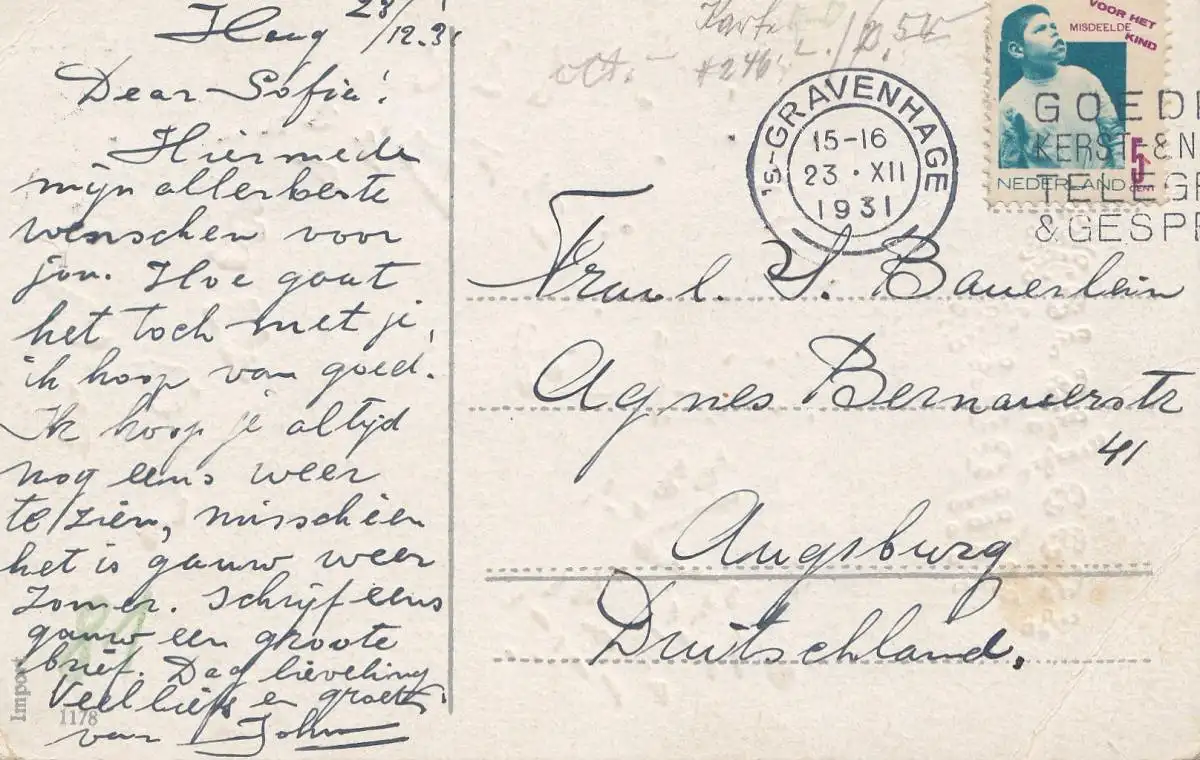 Haag 23/12.31
Dear Sofie!
Hiermede
mijn allerbeste
wenschen voor
jou. Hoe gaat
het toch met je,
ik hoop van goed.
Ik hoop je altijd
nog eens weer
te zien, misschien
het is gauw weer
Zomer. Schrijf eens
gauw een groote
brief. Dag lieveling
Veel liefs en groeten
van John
Import
1178
Karte
#246
'S-GRAVENHAGE
15-16
23 · XII
1931
VOOR HET
MISDEELDE
KIND
5
CENT
NEDERLAND
GOED
KERST- & N
TELEGR
& GESPR
Fraul. S. Bauerlein
Agnes Bernauerstr
41
Augsburg
Duitschland.